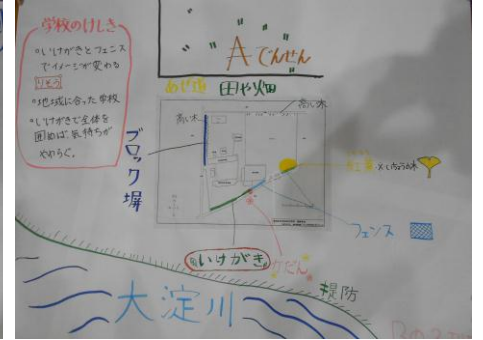 学校のけしき
○いけがきとフェンス
でイメージが変わる
りそう
○地域に合った学校
○いけがきで全体を
囲めば気持ちが
やわらぐ。
Aでんせん
あぜ道 田や畑
高い木
高い木
ブロック塀
紅葉
いちょうの木
フェンス
いけがき
かだん
堤防
大淀川